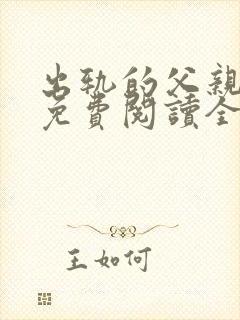 出轨的父親
免費閱讀全
王如何